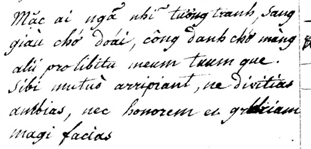 Mặc ai ngã nhĩ tương tranh, sang
giàu chớ đoái, công danh chớ màng
alii pro libitu meum tuum que.
Sibi mutuò arripiant, ne divitias
ambias, nec honorem et gloriam
magi facias